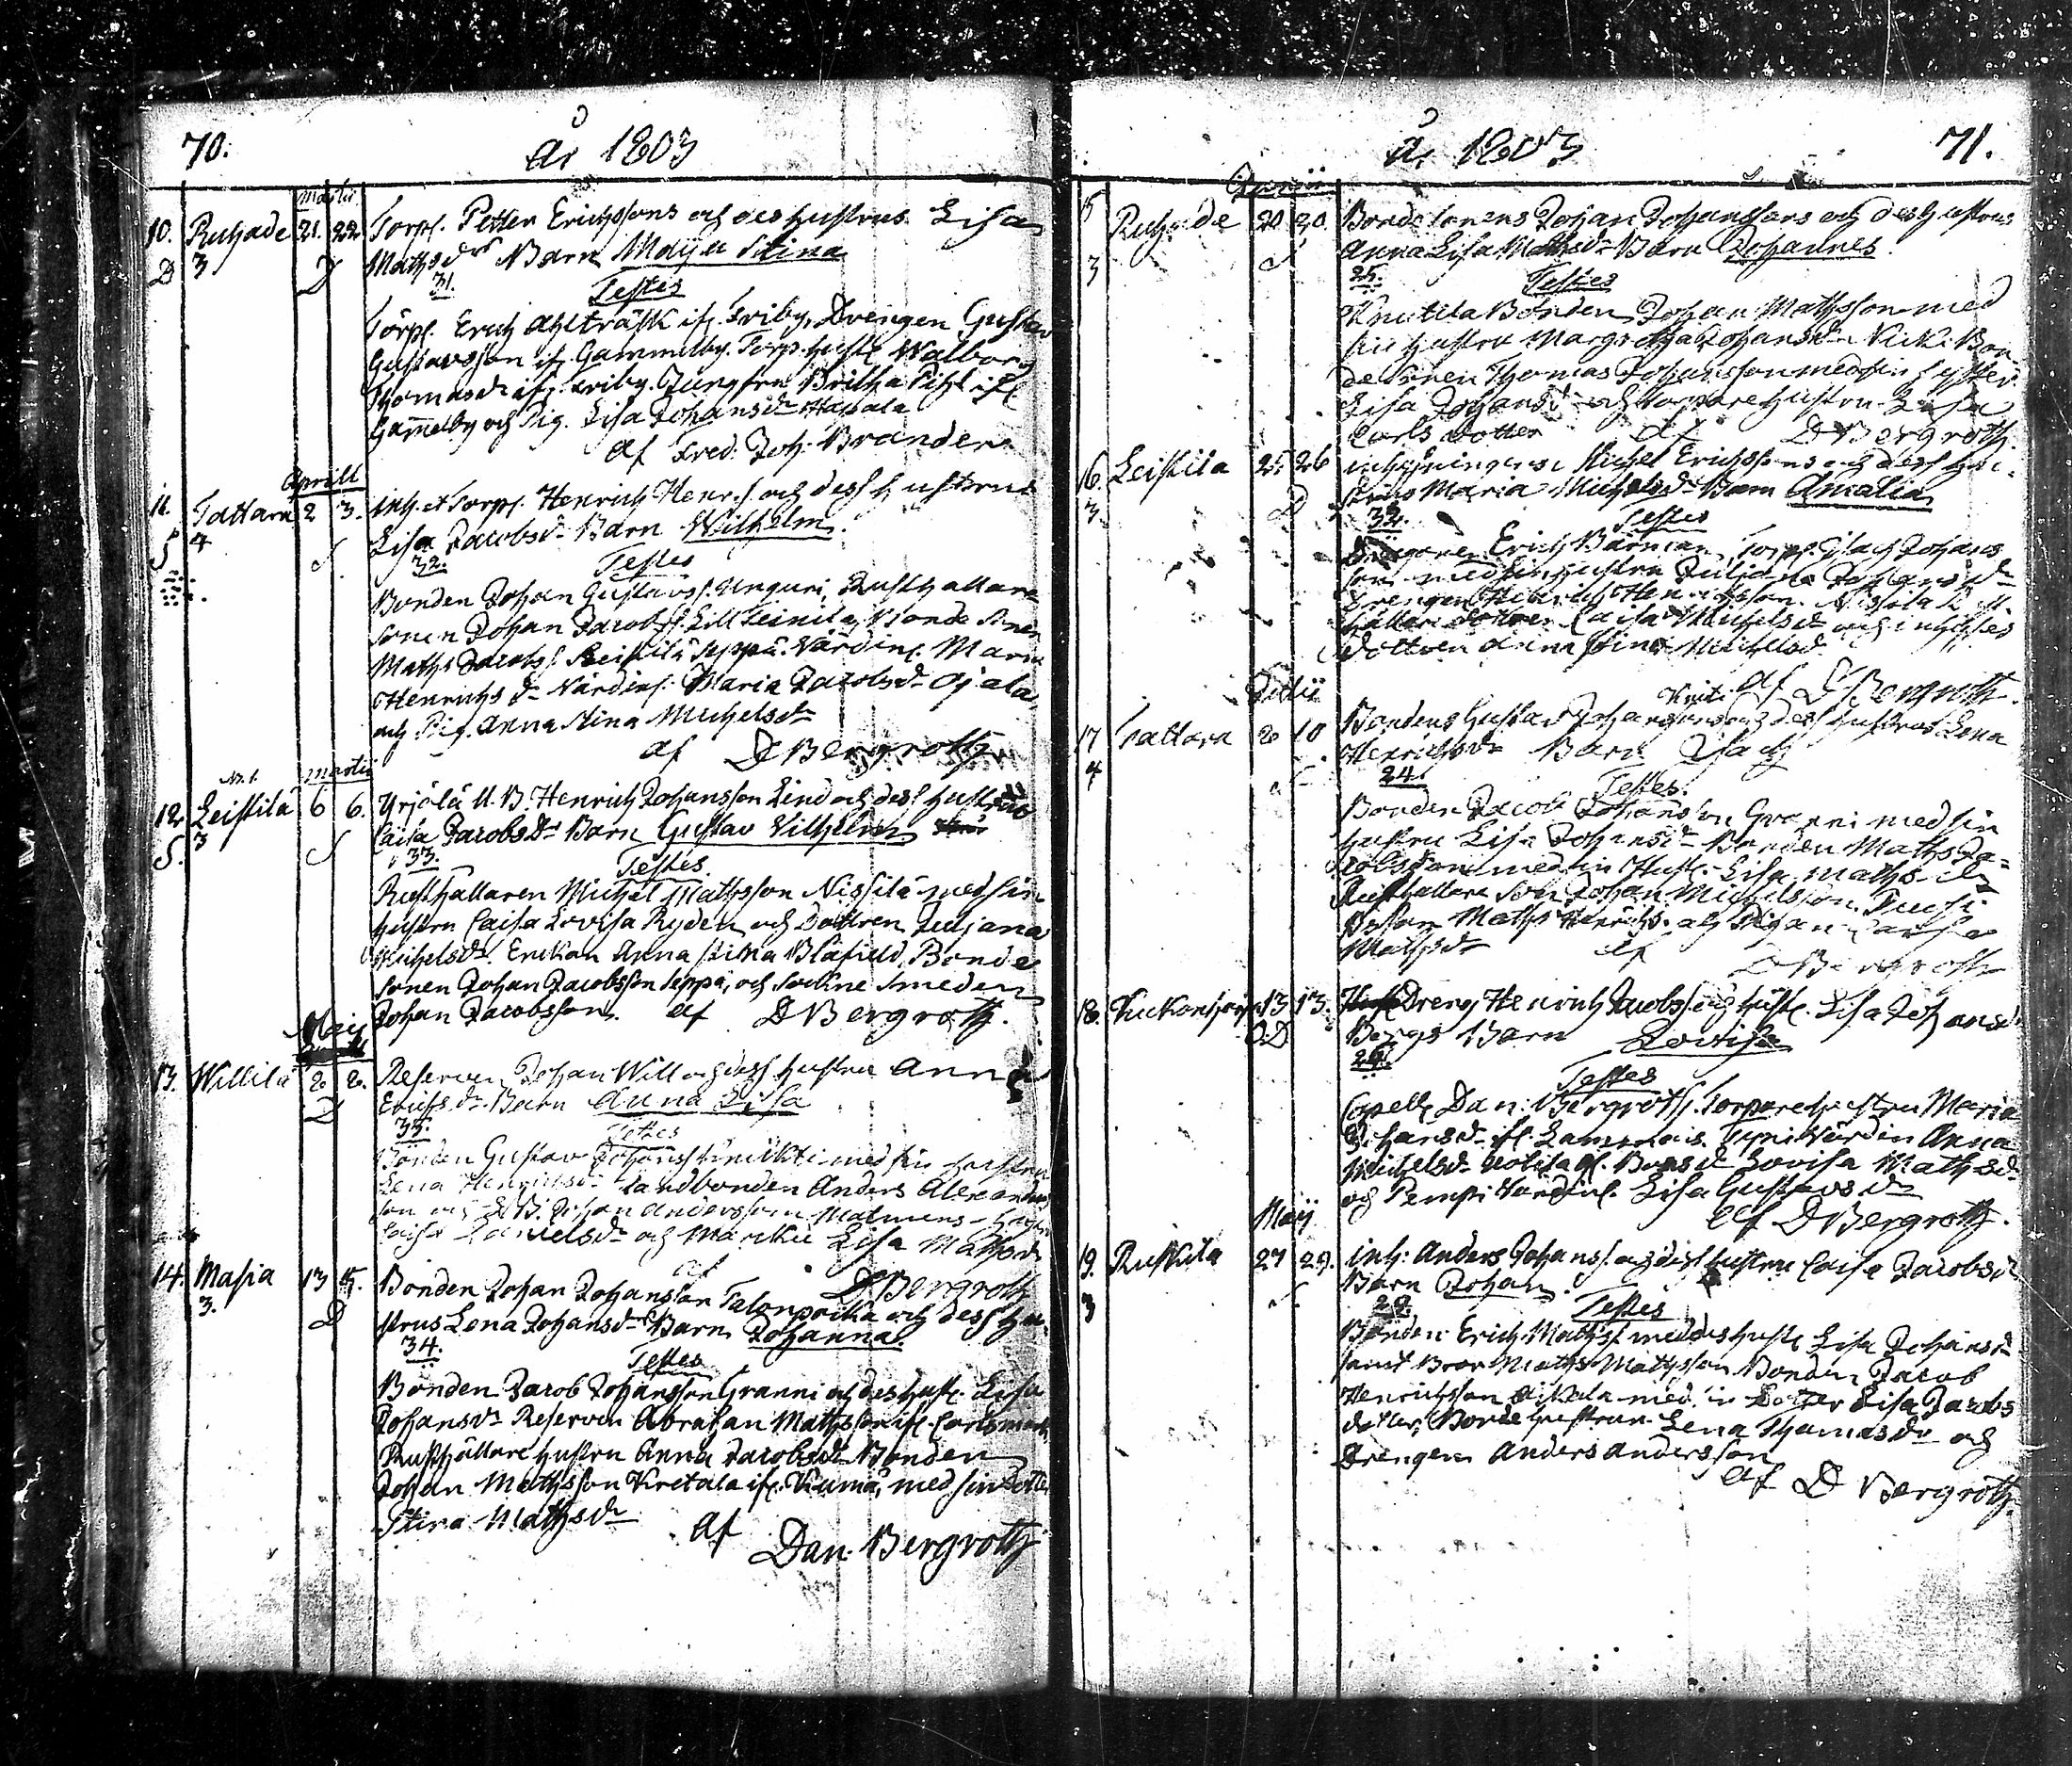 70.
År 1803
Martii
10. Ruhade 21. 22. Torp. Petter Erichssons och des hustrus Lisa
D 3 D Maths dr Barn Maija Stina
31. Testes
Torp. Erich Ahlträsk if. Friby, Drengen Gustav
Gustavsson if. Gammelby. Torp. hust. Walborg
Thomasdr if. Friby. Jungfru Britha Pihl if.
Gammelby och Pig. Lisa Johansdr
af Fred. Joh. Brander
Aprill
11. Tattara 2 3. inh. et Torp. Henrich Henr.s. och dess hustrus
S 4 S. Lisa Jacobsdr Barn Wilhelm.
32. Testes
Bonden Johan Gustavss. Unguri, Rusthållare
sonen Johan Jacobss. Lill Bonde sonen
Maths Jacobs. Leistilä Seppä. Värdin. Maria
Henrichs dr Värdins. Maria Jacobsdr Ojala
och Pig. Anna Stina Michelsdr
af D Bergroth
N. 1. Martii
12. Leistilä 6 6. Yrjölä U. B. Henrich Johansson Lind och dess hustrus
S. 3 S Caisa Jacobsdr Barn Gustav Vilhelm
33. Testes
Rusthållaren Michel Mathsson Nissilä med sin
hustru Caisa Lovisa Ryden och Dottren Juljana
Michelsdr. Enckan Anna Stina Blåfield, Bonde
sonen Johan Jacobsson Seppä, och Sockne Smeden
Johan Jacobsson. af D Bergroth.
Maij
13. Willilä 2 2. Reserven Johan Will och dess hustru Anna
D Erichs dr Barn Anna Lisa
33. Testes
Bonden Gustav Johanss med sin hustru
Lena Henrichsdr Landbonden Anders Alexanders
son och Johan Andersson
Caisa Danielsdr och Lisa Mathsdr
af D Bergroth
14. Masia 13 15. Bonden Johan Johansson Talonpoika och dess hu-
3. D strus Lena Johansdr Barn Johanna.
34. Testes
Bonden Jacob Johansson Granni och des hust. Lisa
Johansdr Reserven Abraham Mathsson if.
Rusthållare hustru Anna Jacobsdr Bonden
Johan Mathsson if. Kumå, med sin Dotter
Stina Mathsdr af
Dan. Bergroth
År 1803 71.
Aprilii
15 Ruhade 20 20. Bonde sonens Johan Johanssons och des hustrus
3 S Anna Lisa Mathsdr Barn Johannes.
25. Testes
Knutila Bonden Johan Mathsson med
sin hustru Margretha Johansdr Bon-
de sonen Thomas Johansson med sin syster
Lisa Johansdr och torpare hustru Lisa
Carls dotter af D Bergroth
16. Leistila 25. 26 inhysningens Michel Erichssons och dess hu-
3. D strus Maria Michelsdr Barn Amalia
32. Testes
Erich Barman Torp. Isach Johans
son med sin hustru Juljana Johansdr
Drengen Henrich Henrichsson. Nissila Rust
hållare dottren Caisa Michelsdr och inhyses
dottren Anna Stina Michelsd
af D Bergroth.
17 Tattara 2 10 Bondens Gustav Johanssons och dess hustrus Lena
4 Henrichsdr Barn Isach
24. Testes.
Bonden Jacob Johansson Granni med sin
hustru Lisa Johansdr Bonden Maths Ja-
cobsson med sin Hust. Lisa Maths dr
Rusthållare Son Johan Michelsson
Maths Henrichs. och Pigan
Mathsdr af
D Bergroth
18. 13 13. Dreng Henrich Jacobs. och hust. Lisa Johansd
D Bergs Barn Lovisa
24. Testes
Capell. Dan: Bergroth. Torpare hustru Maria
Johansdr if. Värdin Anna
Michelsdr Lovisa Mathsdr
och Värdin. Lisa Gustavsdr
af D Bergroth.
Maij
19. Ruskila 27 29. inh: Anders Johanss. och dess hustru Caisa Jacobsd
3 S Barn Johan.
29. Testes
Bonden Erich Mathss. med des hust. Lisa Johansdr
samt Bror Maths Mathsson Bonden Jacob
Henrichsson med sin Dotter Lisa Jacobs
dotter, Bonde hustrun Lena Thomasdr och
Drengen Anders Andersson
af D Bergroth